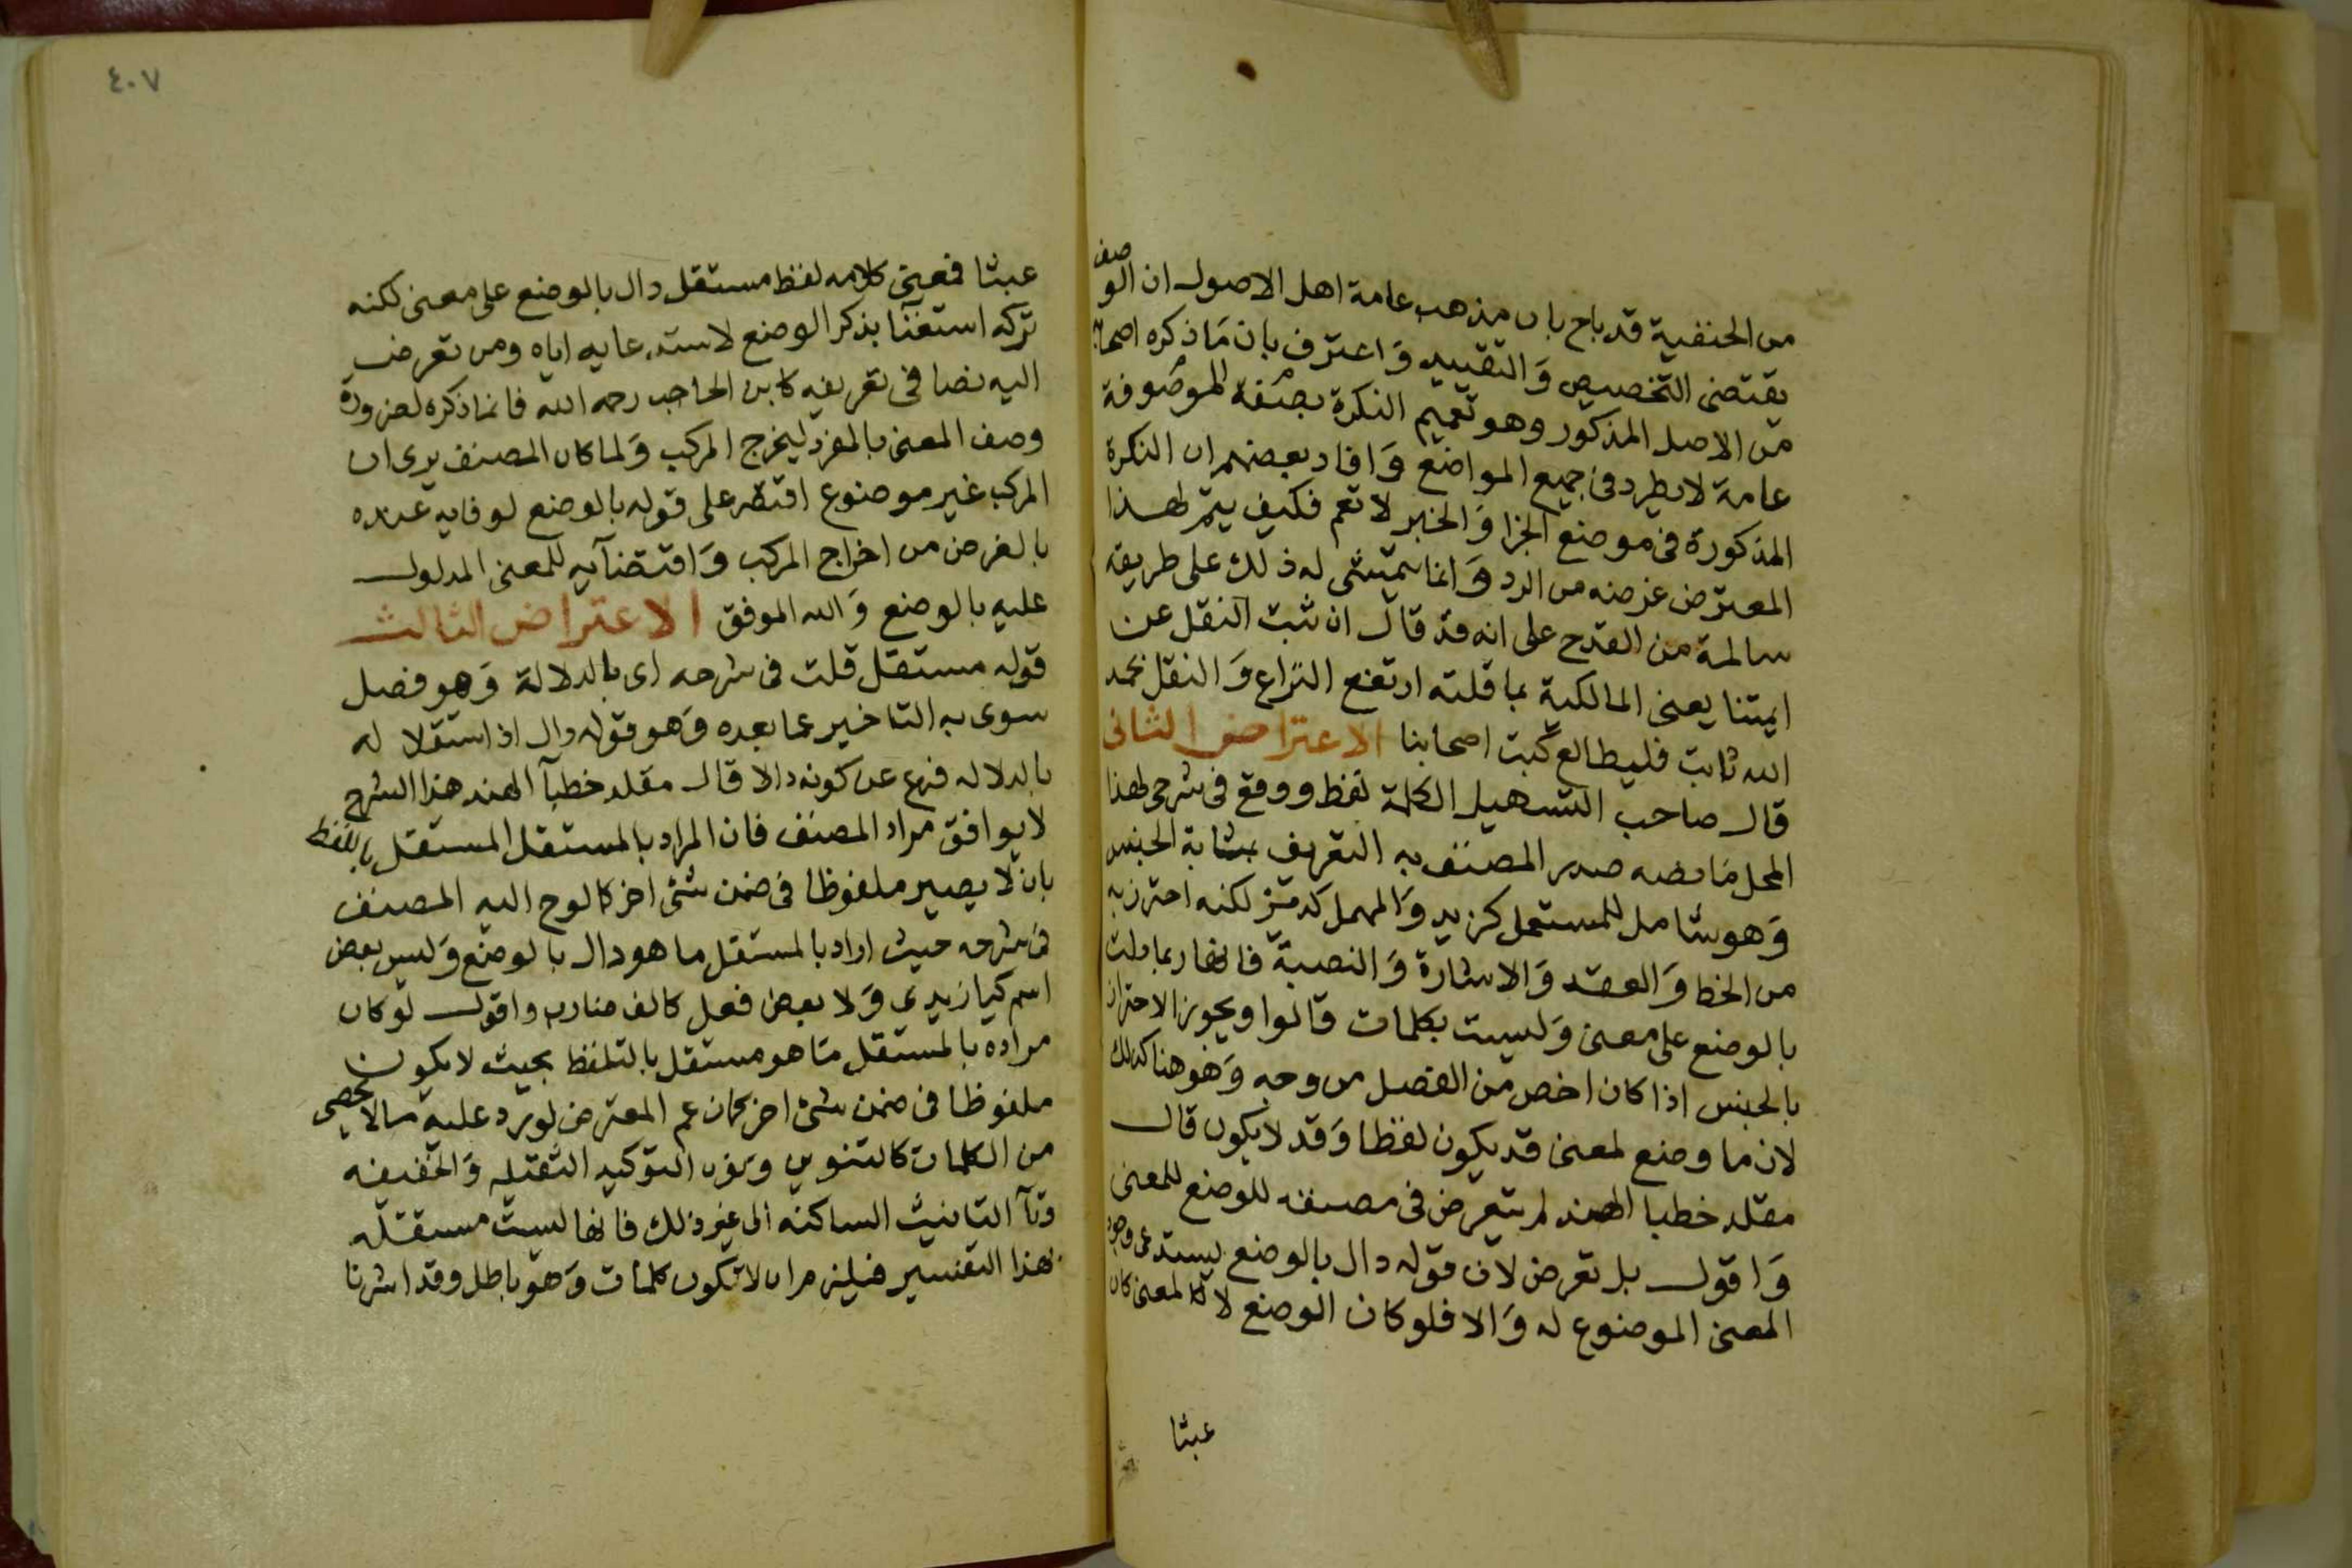 من الحنفية قد باح بان مذهب عامة اهل الاصول ان الوصف
يقتضى التخصيص وَالتقييد وَاعترف بان مَا ذكره اصحابه
من الاصل المذكور وهو تعميم النكرة بصفة الموصوفة
عامة لا يطرد فى جميع المواضع وَافاد بعضهم ان النكرة
المذكورة فى موضع الجزا وَالخبر لا تعم فكيف يتم لهذا
المعترض غرضه من الرد وَانما يتمشى له ذلك على طريقة
سالمة من القدح على انه قد قال ان ثبت النقل عن
ايمتنا يعنى المالكية بما قلته ارتفع النزاع وَالنقل بحمد
الله ثابت فليطالع كتب اصحابنا الاعتراض الثانى
قال صاحب التسهيل الكلمة لفظ ووقع فى شرحى لهذا
المحل مَا نصه صدر المصنف به التعريف بمثابة الجنس
وَهو شامل للمستعمل كزيد وَالمهمل كدمتز لكنه احترز به
من الخط وَالعقد وَالاشارة وَالنصبة فانها ربما دلت
بالوضع على معنى وَليست بكلمات قالوا ويجوز الاحتراز
بالجنس اذا كان اخص من الفصل من وجه وَهو هنا كذلك
لان ما وضع لمعنى قد يكون لفظا وَقد لا يكون قال
مقلد خطبا الهند لم يتعرض فى مصنفه للوضع للمعنى
وَاقول بل تعرض لان قوله دال بالوضع يستدعى وجود
المعنى الموضوع له وَالا فلو كان الوضع لا لمعنى كان
عبثا
٤٠٧
عبثا فمعنى كلامه لفظ مستقل دال بالوضع على معنى لكنه
تركه استغنآ بذكر الوضع لاستدعايه اياه ومن تعرض
اليه نصا فى تعريفه كابن الحاجب رحمه الله فانما ذكره لضرورة
وصف المعنى بالمفرد ليخرج المركب وَلما كان المصنف يرى ان
المركب غير موضوع اقتصر على قوله بالوضع لوفايه عنده
بالغرض من اخراج المركب وَاقتضآيه للمعنى المدلول
عليه بالوضع وَالله الموفق الاعتراض الثالث
قوله مستقل قلت فى شرحه اى بالدلالة وَهو فصل
سوى به التاخير عما بعده وَهو قوله دال اذ استقلاله
بالدلاله فرع عن كونه دالا قال مقلد خطبآ الهند هذا الشرح
لا يوافق مراد المصنف فان المراد بالمستقل المستقل باللفظ
بان لا يصير ملفوظا فى ضمن شئى اخر كالوح اليه المصنف
فى شرحه حيث اراد بالمستقل ما هو دال بالوضع وَليس بعض
اسم كيا زيدى وَلا بعض فعل كالف ضارب واقول لو كان
مراده بالمستقل مَا هو مستقل بالتلفظ بحيث لا يكون
ملفوظا فى ضمن شئ اخر كما زعم المعترض لورد عليه مالا يحصى
من الكلمات كالتنوين ونون التوكيد الثقيله وَالخفيفه
وتآ التانيث الساكنه الى غير ذلك فانها ليست مستقله
بهذا التفسير فيلزم ان لا تكون كلمات وَهو باطل وقد اشرنا